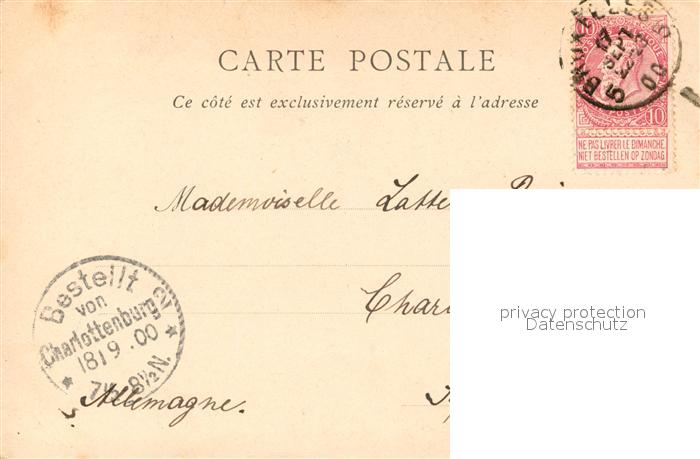 CARTE POSTALE
Ce côté est exclusivement réservé à l'adresse
BRUXELLES 5
17
SEPT
00
10 10
POSTES
NE PAS LIVRER LE DIMANCHE
NIET BESTELLEN OP ZONDAG
Mademoiselle
privacy protection
Datenschutz
Bestellt
von
Charlottenburg 2
18 19 .00
8½N.
Allemagne.